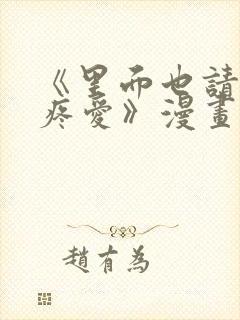 《里面也請
疼愛》漫畫
趙有為